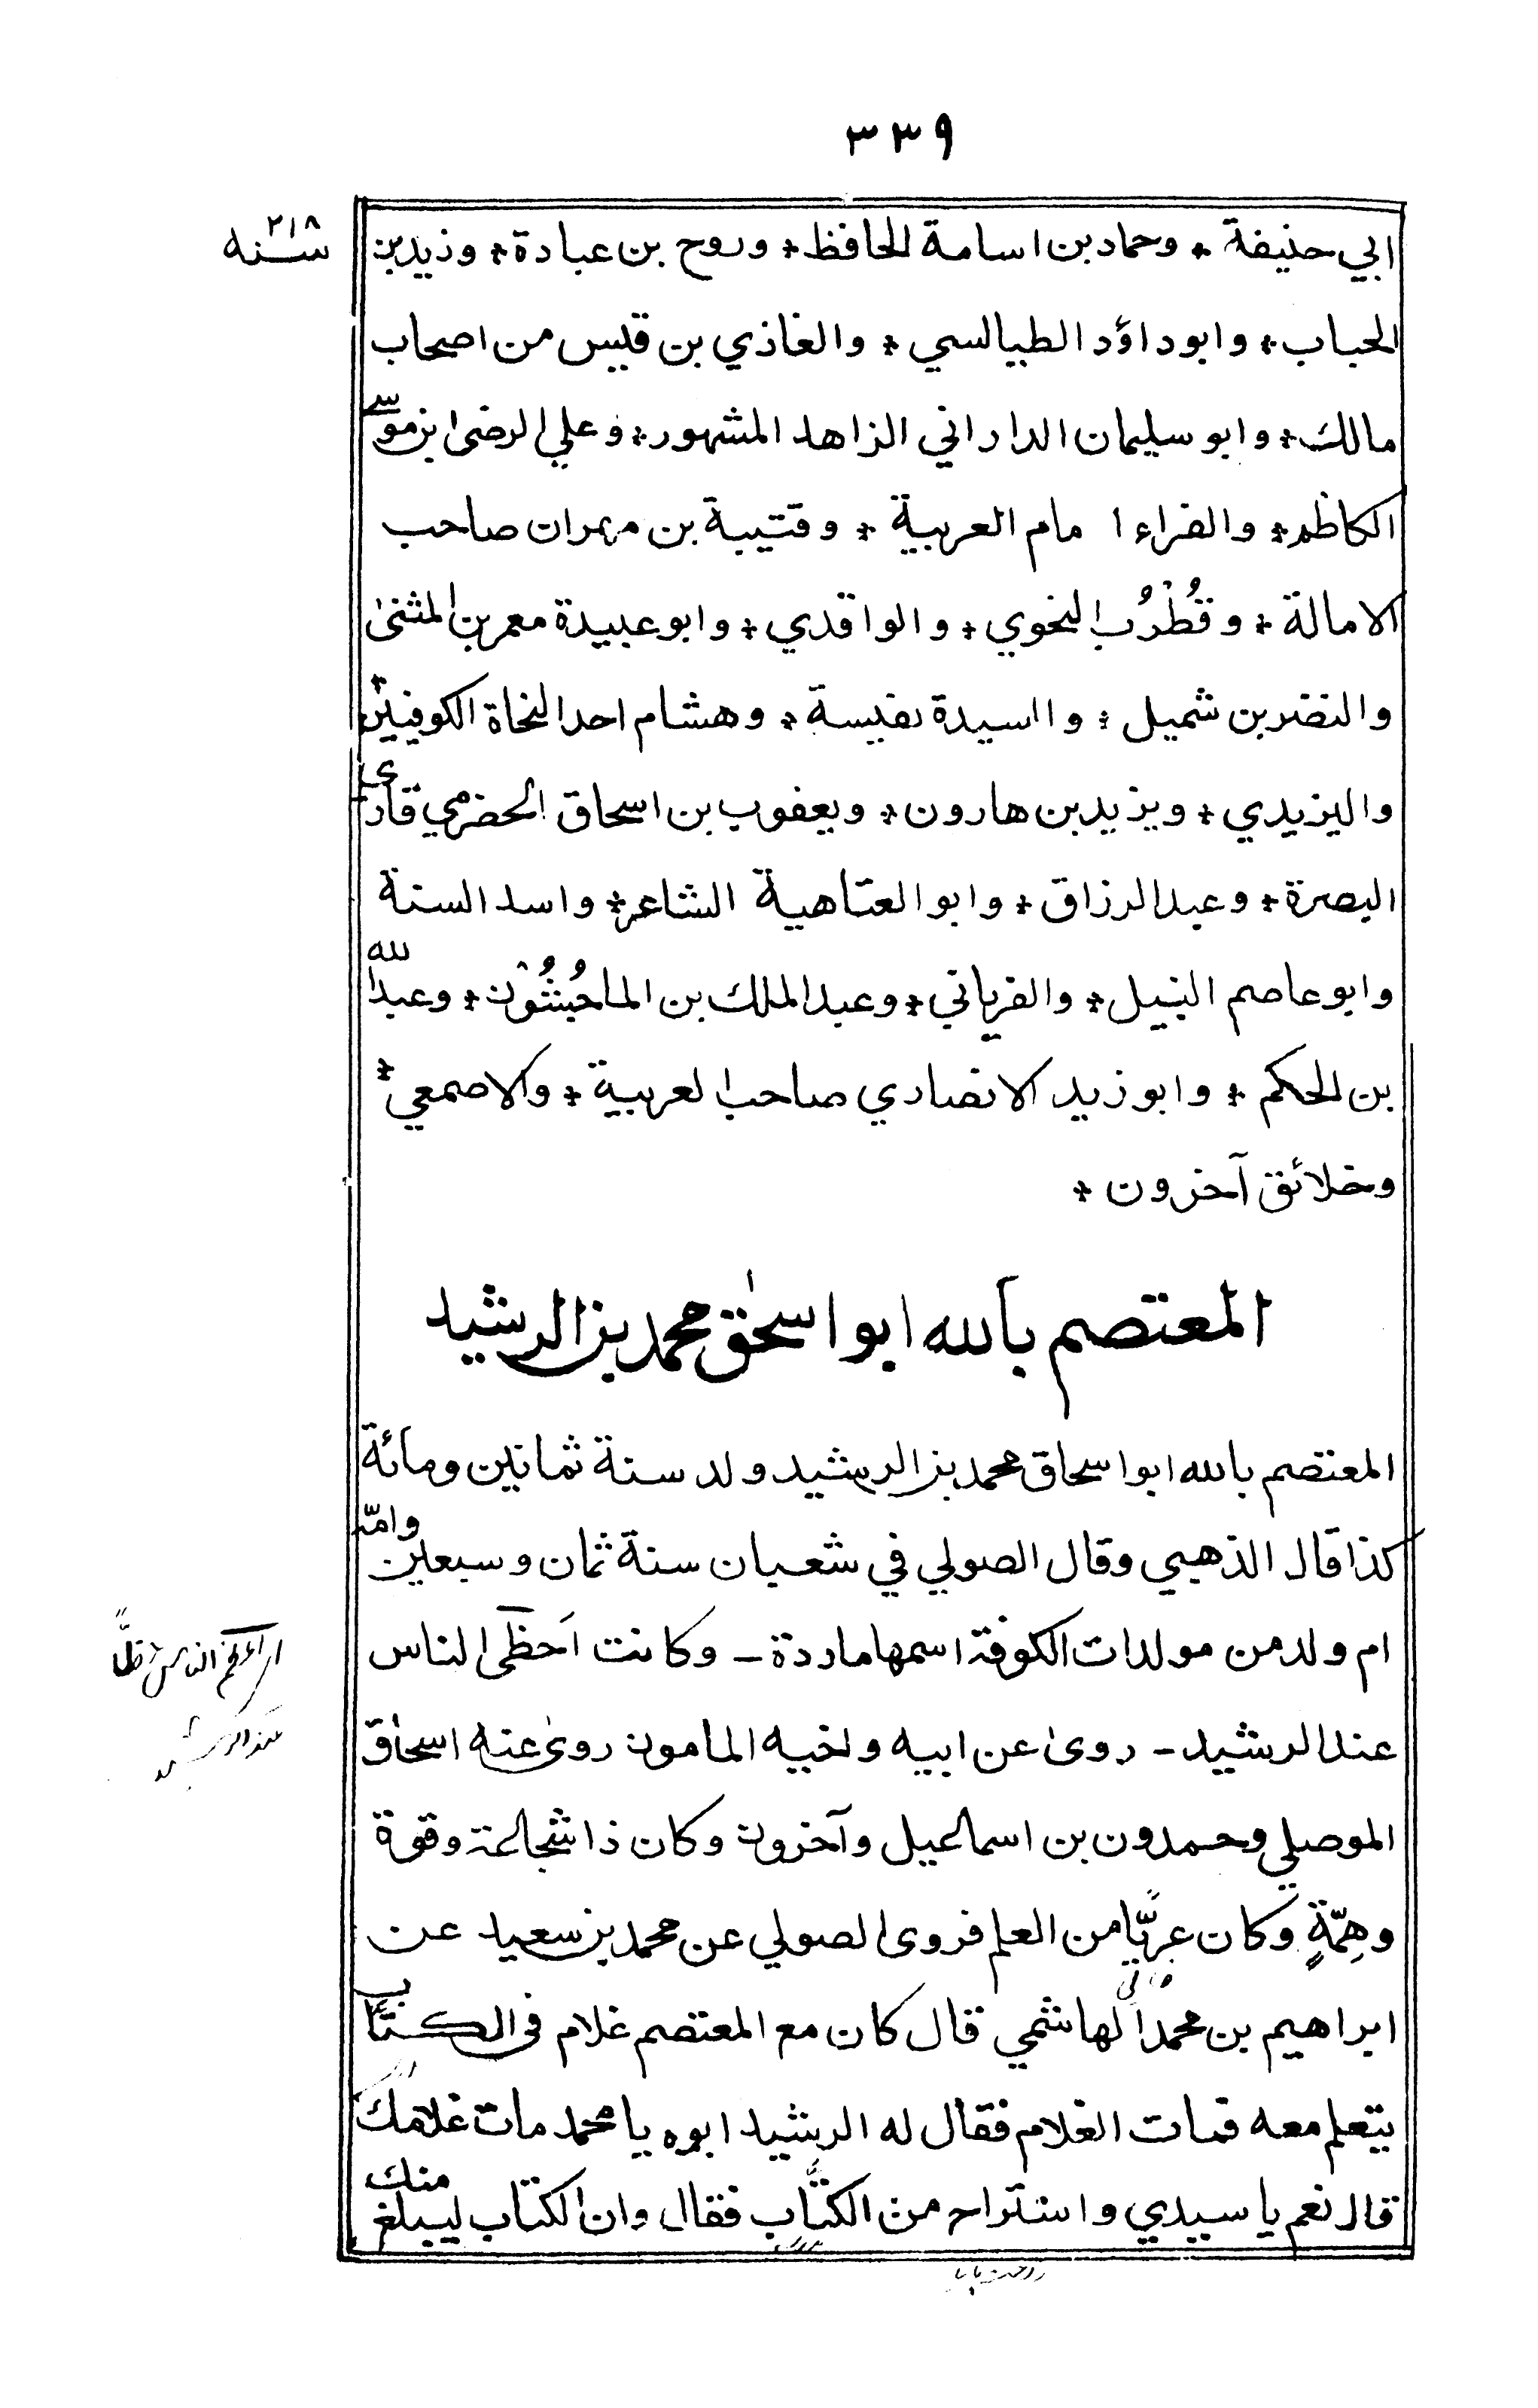 ٣٣٩
سنه ٢١٨
ابي حنيفة * وحماد بن اسامة الحافظ * وروح بن عبادة * وزيد بن
الحباب * وابو داؤد الطيالسي * والغازي بن قيس من اصحاب
مالك * وابو سليمان الداراني الزاهد المشهور * وعلي الرضى ابن موسے
الكاظم * والفراء امام العربية * وقتيبة بن مهران صاحب
الامالة * وقُطْرُب النحوي * والواقدي * وابو عبيدة معمر بن المثنى
والنضر بن شميل * والسيدة نفيسة * وهشام احد النحاة الكوفيين *
واليزيدي * ويزيد بن هارون * ويعقوب بن اسحاق الحضرمي قاري
البصرة * وعبد الرزاق * وابو العتاهية الشاعر * واسد السنة
وابو عاصم النبيل * والفريابي * وعبد الملك بن الماجُشُون * وعبد الله
بن الحكم * وابو زيد الانصاري صاحب العربية * والاصمعي *
وخلائق آخرون *
المعتصم بالله ابو اسحٰق محمد بن الرشيد
المعتصم بالله ابو اسحاق محمد بن الرشيد ولد سنة ثمانين ومائة
كذا قال الذهبي وقال الصولي في شعبان سنة ثمان وسبعين وامّه
ام ولد من مولدات الكوفة اسمها ماردة ـ وكانت اَحظَى الناس
عند الرشيد ـ روى عن ابيه واخيه المامون روى عنه اسحاق
الموصلي وحمدون بن اسماعيل وآخرون وكان ذا شجاعة وقوة
وهِمّةٍ وكان عريًّا من العلم فروى الصولي عن محمد بن سعيد عن
ابراهيم بن محمد الهاشمي قال كان مع المعتصم غلام في الكتّاب
يتعلم معه فمات الغلام فقال له الرشيد ابوه يا محمد مات غلامك
قال نعم يا سيدي واستراح من الكتّاب فقال وان الكتاب ليبلغ منك